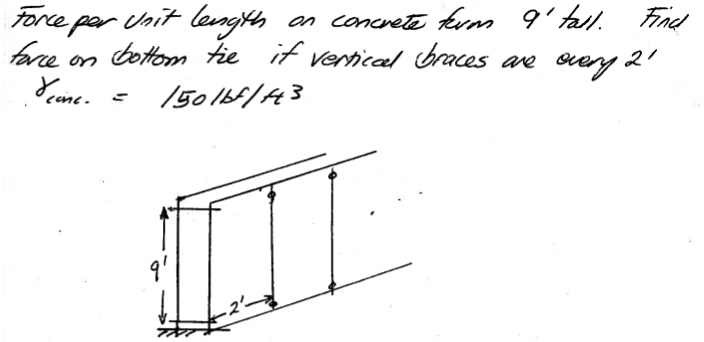 Force per Unit length on concrete form 9' tall. Find
force on bottom tie if vertical braces are every 2'
γconc. = 150 lbf/ft3
9'
2'